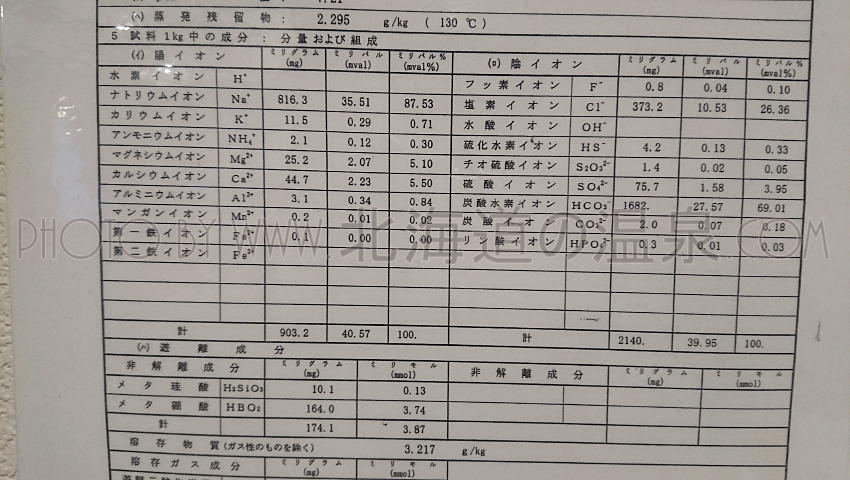 (ハ) 蒸発残留物: 2.295 g/kg ( 130 ℃)
5 試料1kg中の成分: 分量および組成
(イ) 陽イオン ミリグラム (mg) ミリバル (mval) ミリバル% (mval%) (ロ) 陰イオン ミリグラム (mg) ミリバル (mval) ミリバル% (mval%)
水素イオン H⁺ フッ素イオン F⁻ 0.8 0.04 0.10
ナトリウムイオン Na⁺ 816.3 35.51 87.53 塩素イオン Cl⁻ 373.2 10.53 26.36
カリウムイオン K⁺ 11.5 0.29 0.71 水酸イオン OH⁻
アンモニウムイオン NH₄⁺ 2.1 0.12 0.30 硫化水素イオン HS⁻ 4.2 0.13 0.33
マグネシウムイオン Mg²⁺ 25.2 2.07 5.10 チオ硫酸イオン S₂O₃²⁻ 1.4 0.02 0.05
カルシウムイオン Ca²⁺ 44.7 2.23 5.50 硫酸イオン SO₄²⁻ 75.7 1.58 3.95
アルミニウムイオン Al³⁺ 3.1 0.34 0.84 炭酸水素イオン HCO₃⁻ 1682. 27.57 69.01
マンガンイオン Mn²⁺ 0.2 0.01 0.02 炭酸イオン CO₃²⁻ 2.0 0.07 0.18
第一鉄イオン Fe²⁺ 0.1 0.00 0.00 リン酸イオン HPO₄²⁻ 0.3 0.01 0.03
第二鉄イオン Fe³⁺
PHOTO BY WWW.北海道の温泉.COM
計 903.2 40.57 100. 計 2140. 39.95 100.
(ハ) 遊離成分
非解離成分 ミリグラム (mg) ミリモル (mmol) 非解離成分 ミリグラム (mg) ミリモル (mmol)
メタ珪酸 H₂SiO₃ 10.1 0.13
メタ硼酸 HBO₂ 164.0 3.74
計 174.1 3.87
溶存物質(ガス性のものを除く) 3.217 g/kg
溶存ガス成分 ミリグラム (mg) ミリモル (mmol)